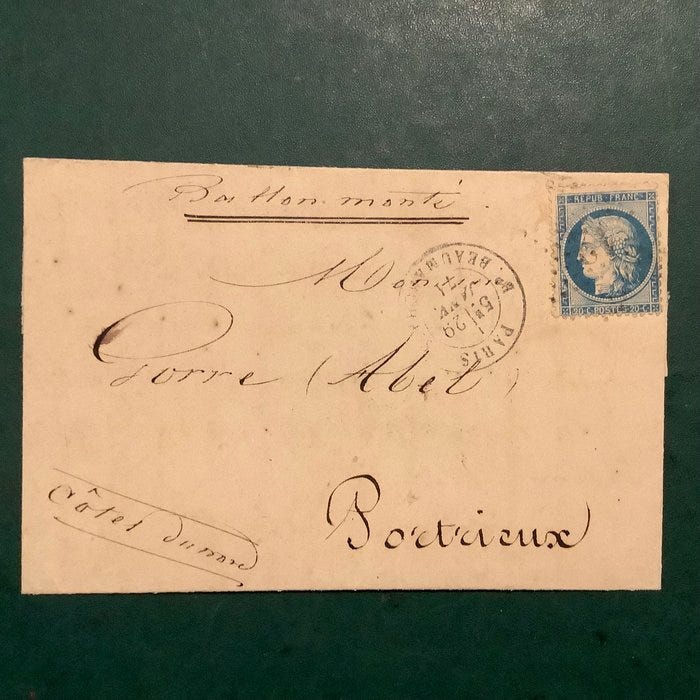 Ballon monté.
RÉPUB. FRANC.
20 C. POSTES 20 C.
Monsieur
Bd. BEAUM
PARIS
5E 29 JANV. 71
Gorre (Abel)
Portrieux
Côtes du nord